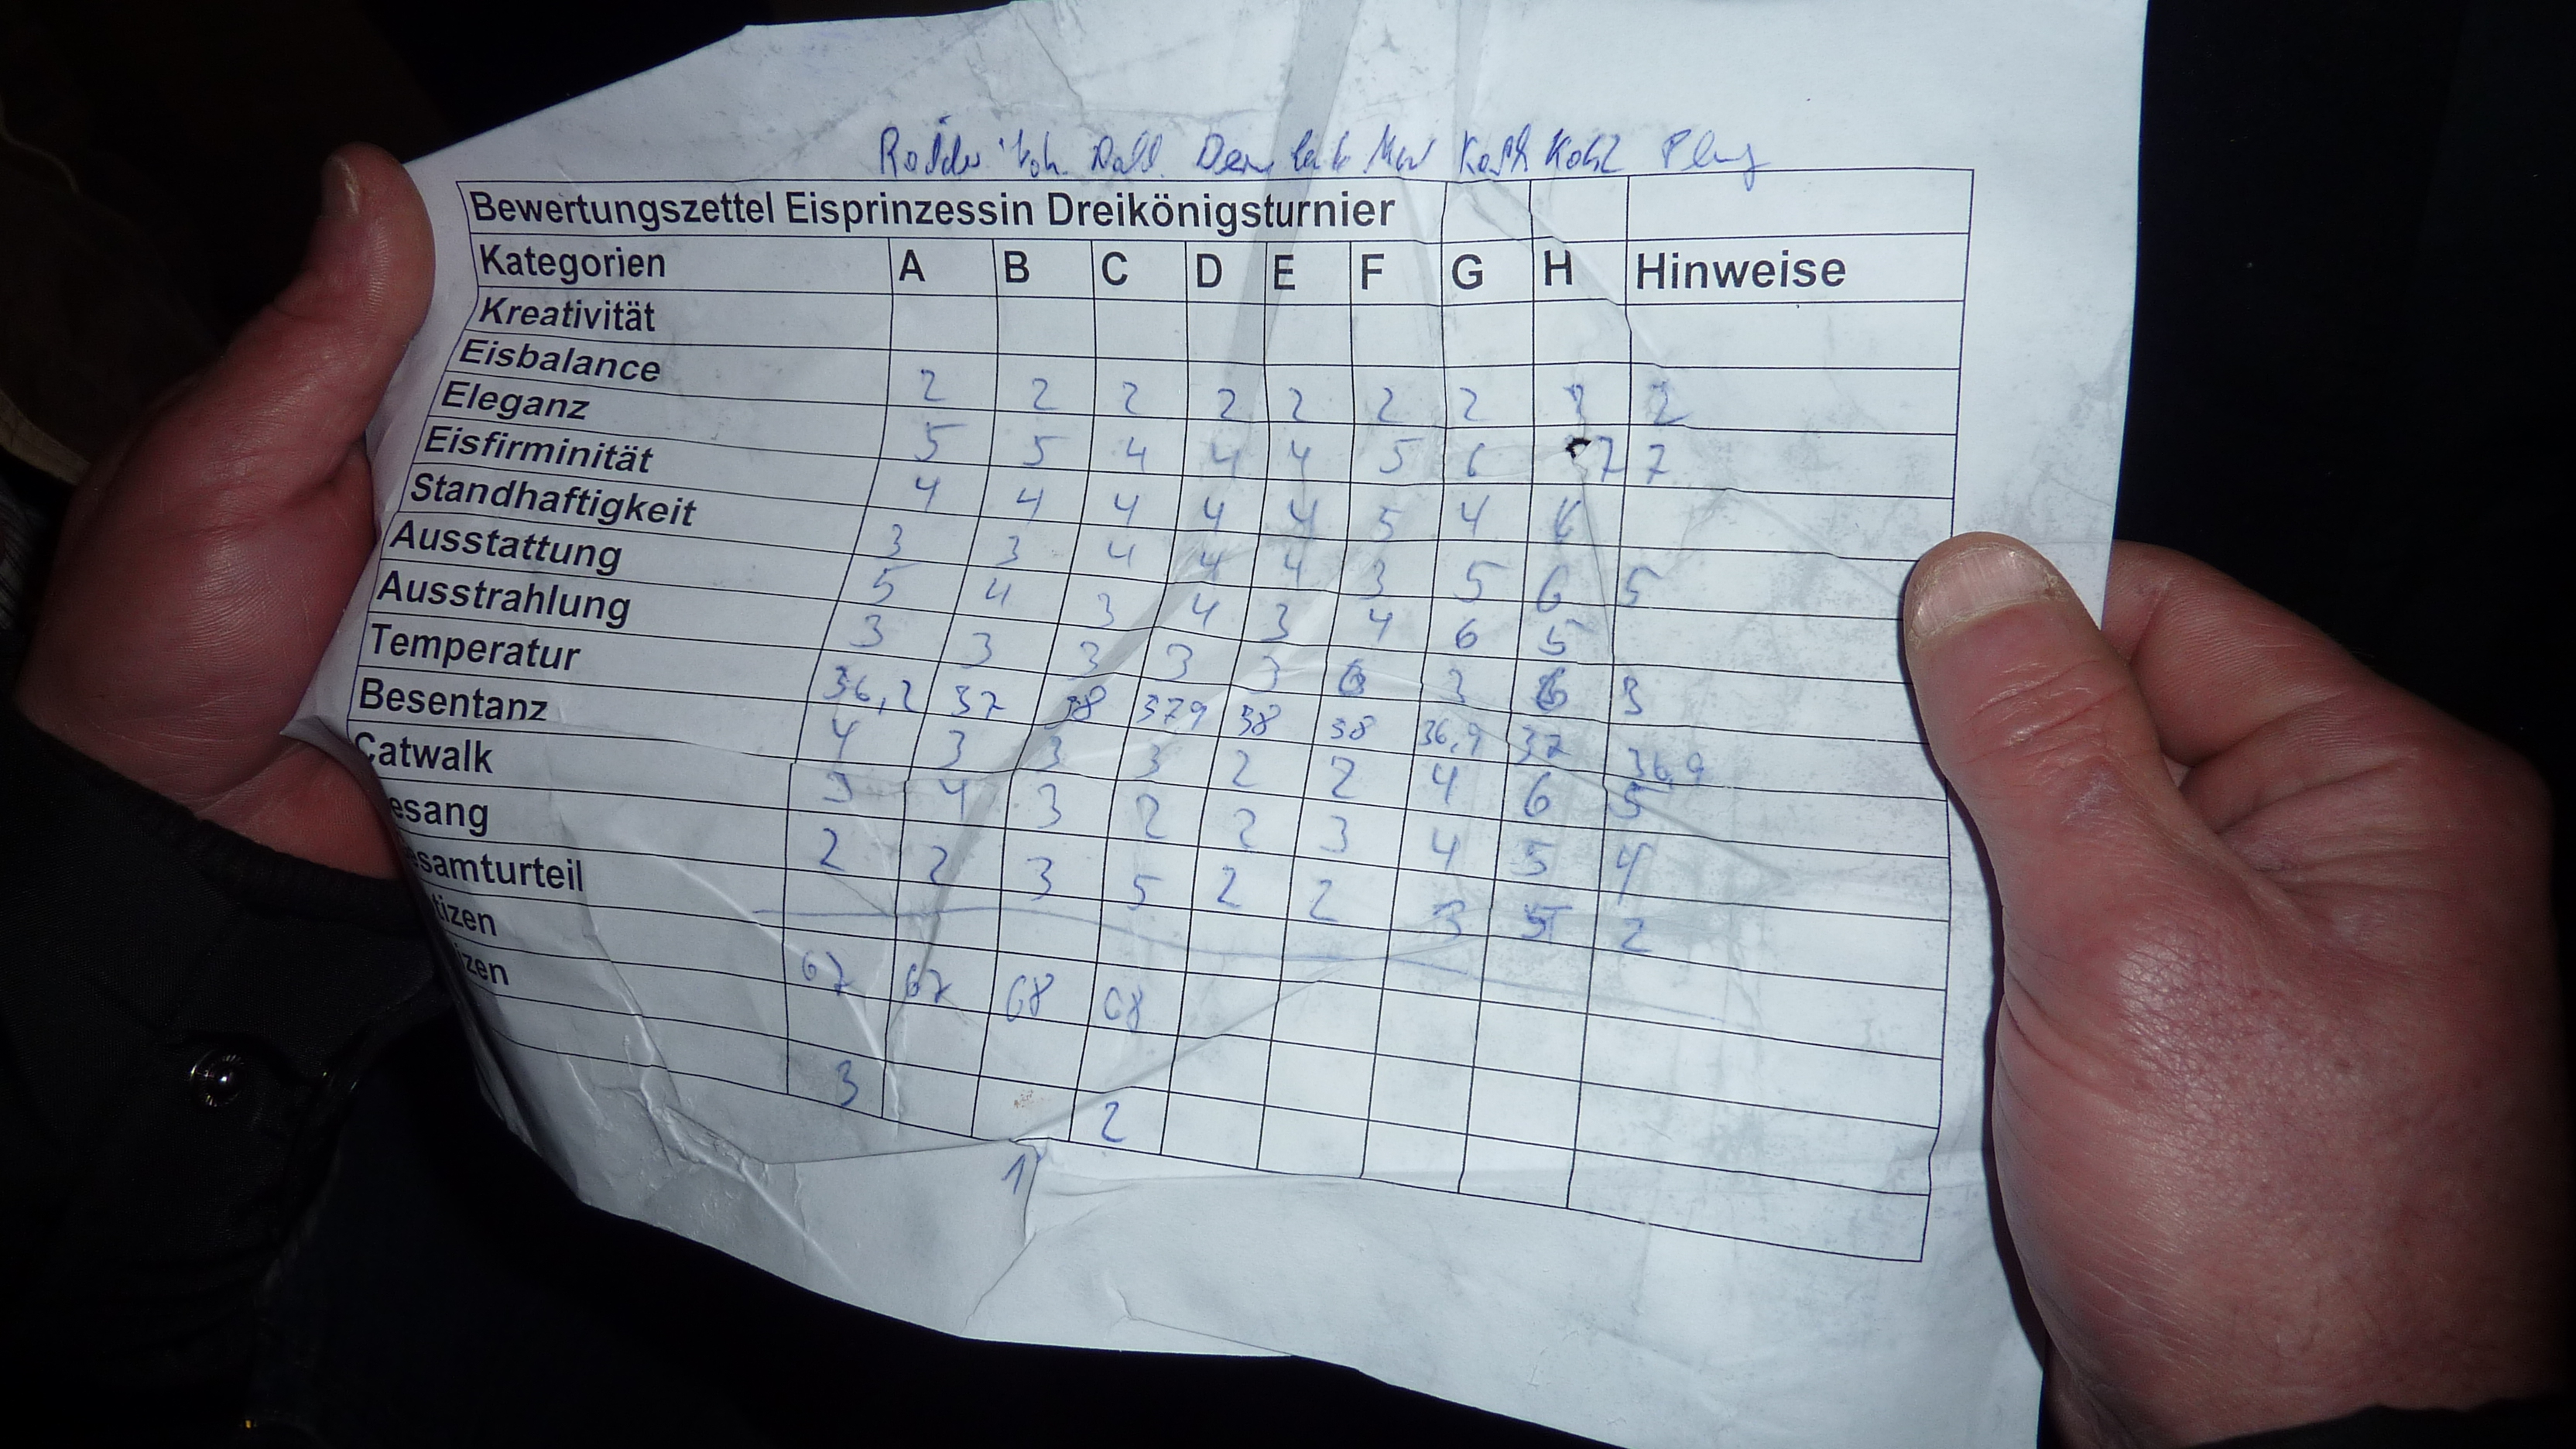 Bewertungszettel Eisprinzessin Dreikönigsturnier
Kategorien A B C D E F G H Hinweise
Kreativität
Eisbalance 2 2 2 2 2 2 2 2
Eleganz 5 5 4 4 4 5 6 7 7
Eisfirminität 4 4 4 4 4 5 4 6
Standhaftigkeit 3 3 4 4 4 3 5 6 5
Ausstattung 5 4 3 4 3 4 6 5
Ausstrahlung 3 3 3 3 3 6 3 6 3
Temperatur 36,2 37 38 379 38 38 36,9 37 36,9
Besentanz 4 3 3 3 2 2 4 6 5
Catwalk 3 4 3 2 2 3 4 5 4
esang 2 2 3 5 2 2 3 5 2
esamturteil
tizen 67 67 68 68
izen
3 2
1